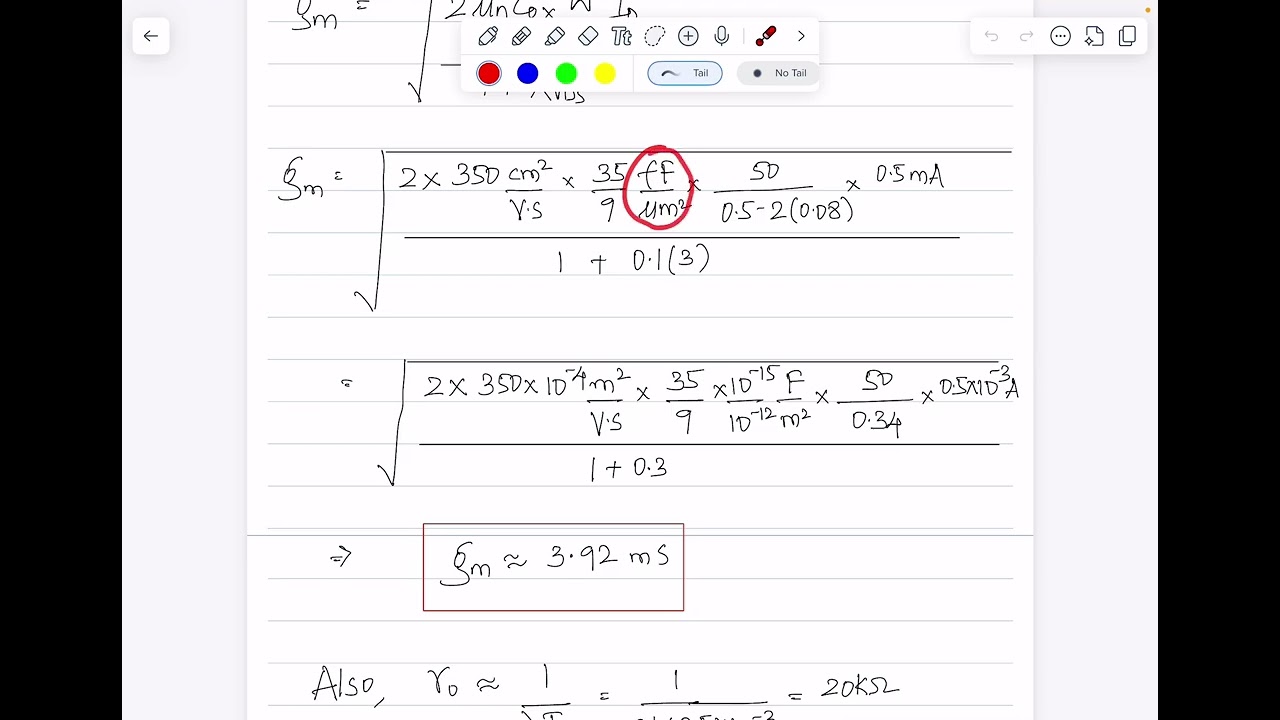 gm = √ 2 μnCox W ID
Tt
Tail No Tail
1 + λVDS
gm = √ 2 × 350 cm²/V.S × 35/9 fF/μm² × 50/0.5-2(0.08) × 0.5mA
1 + 0.1(3)
= √ 2 × 350×10⁻⁴ m²/V.S × 35/9 ×10⁻¹⁵/10⁻¹² F/m² × 50/0.34 × 0.5×10⁻³A
1 + 0.3
⇒ gm ≈ 3.92 mS
Also, r₀ ≈ 1 = 1 = 20KΩ